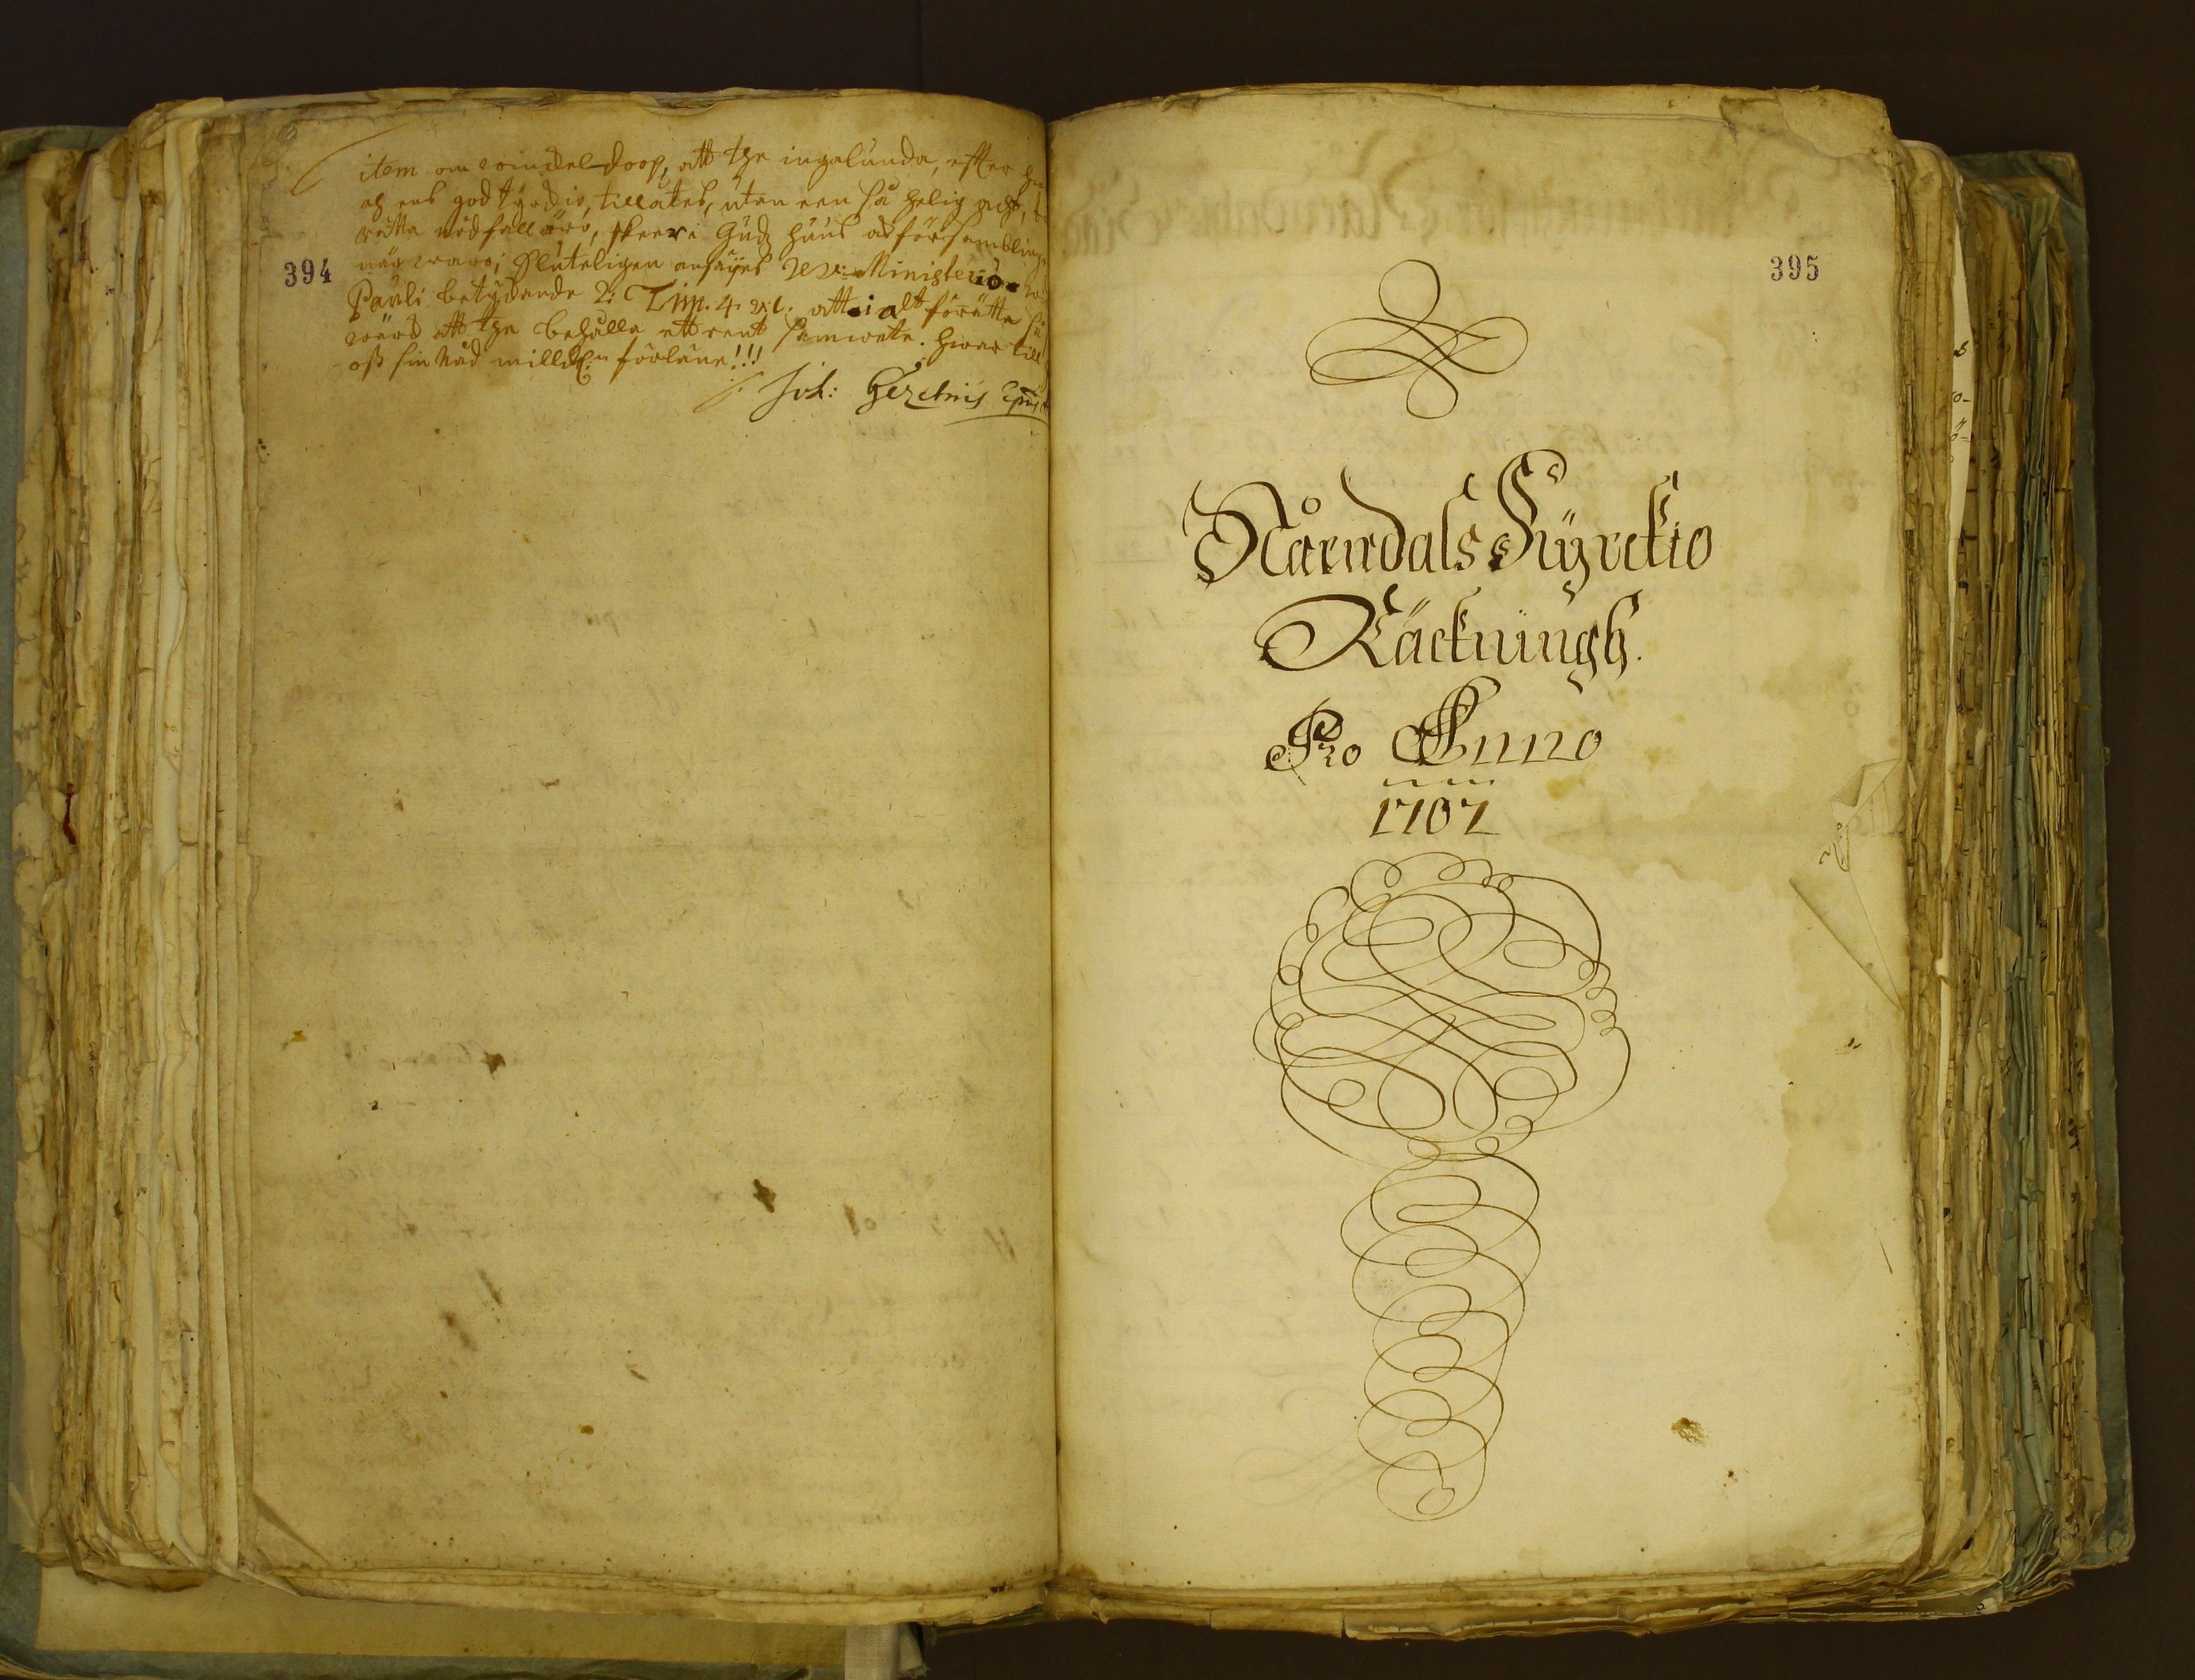 394
item om winckel doop, att the ingalunda, efter
ens godtyckio, tillåtes, utan een så helig act,
rätta nödfall äro, skeer i Gudz huus och församblingens
när waro; sluteligen ansäijes Rev: Ministerio
Pauli betydande 2: Tim. 4. att i alt förätta så
werd att the behålla ett reent samwete. hwar till
oss sin Nåd milld. förläne!!!
Joh: Gezelius Epus
395
Nårrdals Kÿrckio
Räckningh.
Pro Anno
1707